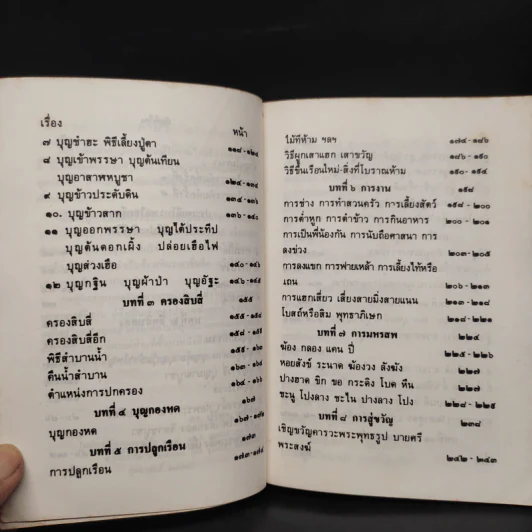 เรื่อง
หน้า
๗ บุญซำฮะ พิธีเลี้ยงปู่ตา ๑๑๘-๑๒๔
๘ บุญเข้าพรรษา บุญต้นเทียน
บุญอาสาฬหบูชา ๑๒๔-๑๓๔
๙ บุญข้าวประดับดิน ๑๓๔-๑๓๖
๑๐. บุญข้าวสาก ๑๓๖-๑๔๐
๑๑ บุญออกพรรษา บุญใต้ประทีป
บุญต้นดอกเผิ้ง ปล่อยเฮือไฟ
บุญส่วงเฮือ ๑๔๐-๑๔๖
๑๒ บุญกฐิน บุญผ้าป่า บุญอัฐะ ๑๔๖-๑๕๔
บทที่ ๓ ครองสิบสี่ ๑๕๕
ครองสิบสี่ ๑๕๕-๑๕๘
ครองสิบสี่อีก
พิธีสำบานน้ำ
คืนน้ำสำบาน
ตำแหน่งการปกครอง
บทที่ ๔ บุญกองหด ๑๖๗
บุญกองหด
บทที่ ๕ การปลูกเรือน ๑๗๓
การปลูกเรือน ๑๗๓-๑๗๔
ไม้ที่ห้าม ฯลฯ ๑๗๔-๑๘๖
วิธีผูกเสาแฮก เสาขวัญ ๑๘๖-๑๙๐
วิธีขึ้นเรือนใหม่-สิ่งที่โบราณห้าม ๑๙๐-๑๙๔
บทที่ ๖ การงาน ๑๙๘
การช่าง การทำสวนครัว การเลี้ยงสัตว์ ๑๙๘-๒๐๐
การค่ำหูก การตำข้าว การกินอาหาร ๒๐๐-๒๐๑
การเป็นพี่น้องกัน การนับถือศาสนา การ
ลงช่วง ๒๐๓-๒๐๕
การลงแขก การฟายเหล้า การเลี้ยงไท้หรือ
เถน ๒๐๖-๒๑๓
การแฮกเสี่ยว เสี่ยงสายมิ่งสายแนน ๒๑๓-๒๑๘
โบสถ์หรือสิม พุทธาภิเษก ๒๑๘-๒๒๑
บทที่ ๗ การมหรสพ ๒๒๔
ฆ้อง กลอง แคน ปี่ ๒๒๕-๒๒๖
หอยสังข์ ระนาด ฆ้องวง สังฆัง ๒๒๗
ปางฮาด ขิก ขอ กระดิง โบด หืน
ชะนู โปงลาง ชะไน ปางลาง โปง ๒๒๘-๒๒๙
บทที่ ๘ การสู่ขวัญ ๒๓๘
เชิญขวัญคารวะพระพุทธรูป บายศรี
พระสงฆ์ ๒๔๒-๒๔๓